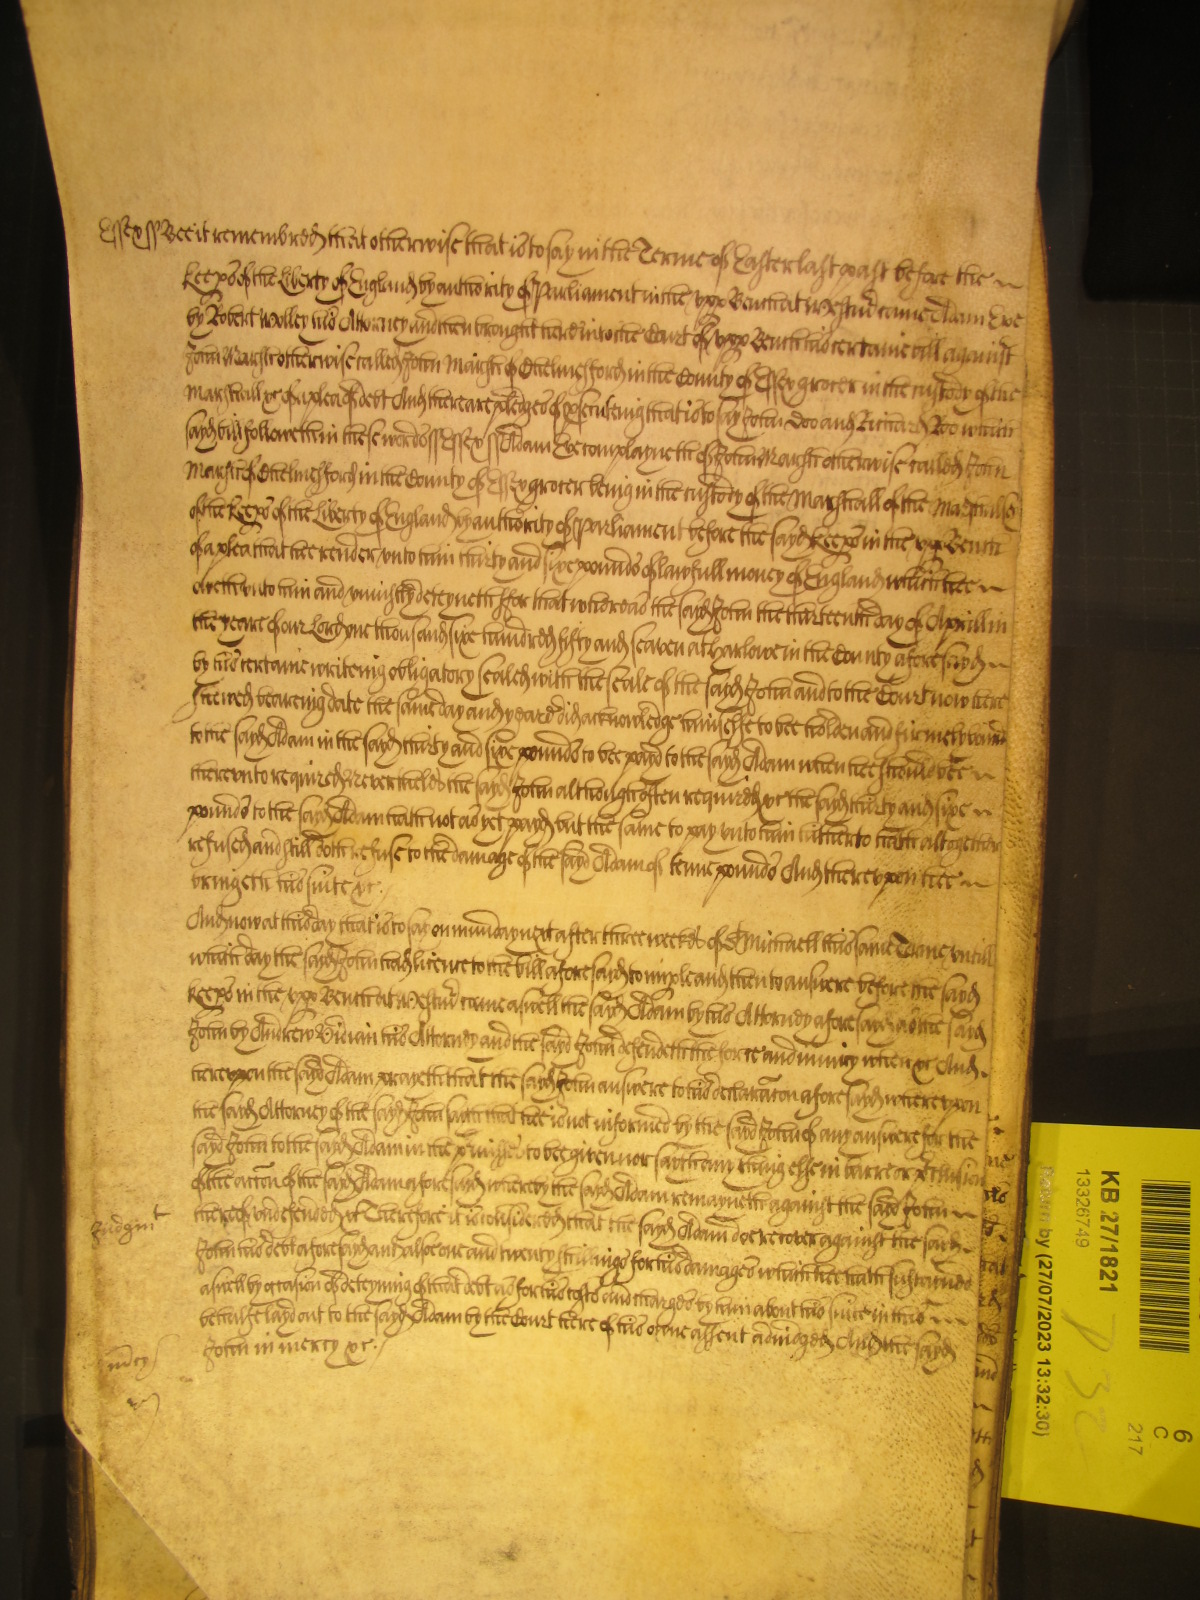 Essex ss Bee it remembred that otherwise that is to say in the Terme of Easter last past before the
Keeps of the Liberty of England by authority of Parliament in the upp Bench at Westmr came Adam Eve
by Robert Wolley his Attorney and then brought here into the Court of upp Bench his certaine bill against
John Marsh otherwise called John Marsh of Chelmesford in the County of Essex grocer in the custody of the
Marshall &c of a plea of debt And there are pledges of prosecuteing that is to say John Doo and Richard Roo which
sayd bill followeth in these words ss Essex ss Adam Eve complayneth of John Marsh otherwise called John
Marsh of Chelmesford in the County of Essex grocer being in the custody of the Marshall of the Marshallsea
of the Keeps of the Liberty of England by authority of Parliament before the sayd Keeps in the upp Bench
of a plea that hee render unto him thirty and sixe pounds of lawfull money of England which hee
oweth unto him and uniustly deteyneth for that whereas the sayd John the thirteenth day of Aprill in
the yeare of our Lord one thousand sixe hundred fifty and seaven at Harlowe in the County aforesayd
by his certaine writeing obligatory sealed with the seale of the sayd John and to the Court now here
shewed beareing date the same day and yeare did acknowledge himselfe to bee holden and firmely bound
to the sayd Adam in the sayd thirty and sixe pounds to bee payd to the sayd Adam when hee should bee
thereunto required Neverthelesse the sayd John although often required &c the sayd thirty and sixe
pounds to the sayd Adam hath not as yet payd but the same to pay unto him hitherto hath altogether
refused and still doth refuse to the damage of the sayd Adam of tenne pounds And thereupon hee
bringeth his suite &c
And now at this day that is to say on munday next after three weekes of St Michaell this same Terme untill
which day the sayd John had licence to the bill aforesayd to imple and then to answere before the sayd
Keeps in the upp Bench at Westmr came aswell the sayd Adam by his Attorney aforesayd as the sayd
John by Andrew Vivian his Attorney and the sayd John defendeth the force and iniury when &c And
hereupon the sayd Adam prayeth that the sayd John answere to his declaracon aforesayd whereupon
the sayd Attorney of the sayd John saith that hee is not informed by the sayd John of any answere for the
sayd John to the sayd Adam in the premisses to bee given nor sayth any thing else in barre or preclusion
of the accon of the sayd Adam aforesayd whereby the sayd Adam remayneth against the sayd John
thereof undefended &c Therefore it is considered that the sayd Adam doe recover against the sayd
Judgmt
John his debt aforesayd and alsoe one and twenty shillings for his damages which hee hath susteined
aswell by occasion of deteyning of that debt as for his costs and charges by him about his suite in this
behalfe layd out to the sayd Adam by the Court here of his owne assent adiudged And the sayd
John in mercy &c
mcy
KB 27/1821
13326749
by (27/07/2023 13:32:30)
6
C
217